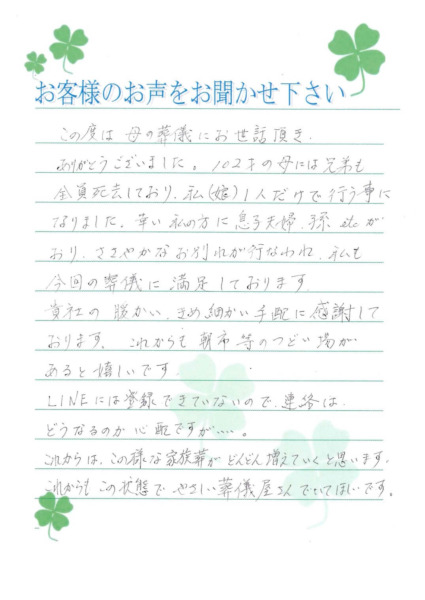 お客様のお声をお聞かせ下さい
この度は 母の葬儀にお世話頂き、
ありがとうございました。102才の母には兄弟も
全員死去しており、私(娘)1人だけで行う事に
なりました。幸い 私の方に 息子夫婦、孫 etc が
おり、ささやかなお別れが行なわれ、私も
今回の葬儀に 満足しております。
貴社の 暖かい、きめ細かい手配に感謝して
おります。これからも 朝市等のつどい場が
あると嬉しいです。
LINEには登録できていないので、連絡は
どうなるのか 心配ですが……。
これからは、この様な家族葬が どんどん増えていくと思います。
これからも この状態で やさしい葬儀屋さんでいてほしいです。